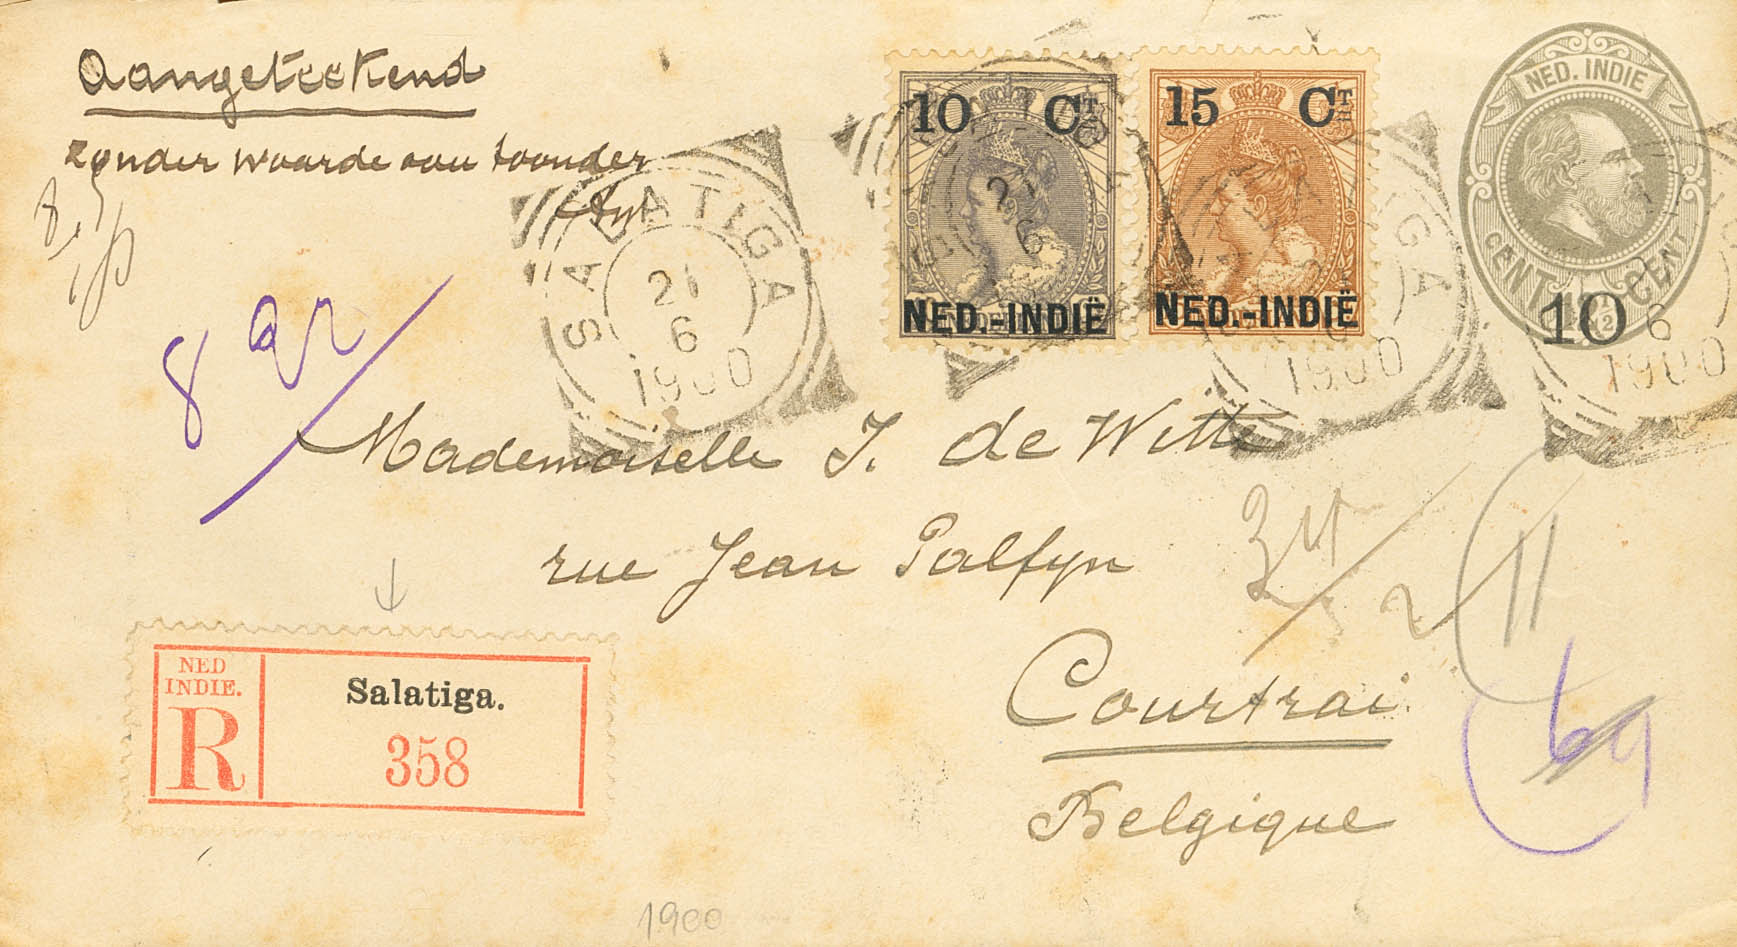 Aangeteekend
zonder waarde aan toonder
SALATIGA
21
6
1900
10 CT
NED.-INDIË
15 CT
NED.-INDIË
NED. INDIE
CENT 12½ CENT
10
6
1900
1900
8
Mademoiselle J. de Witte
rue Jean Palfyn
Courtrai
Belgique
11
69
NED
INDIE.
R
Salatiga.
358
1900